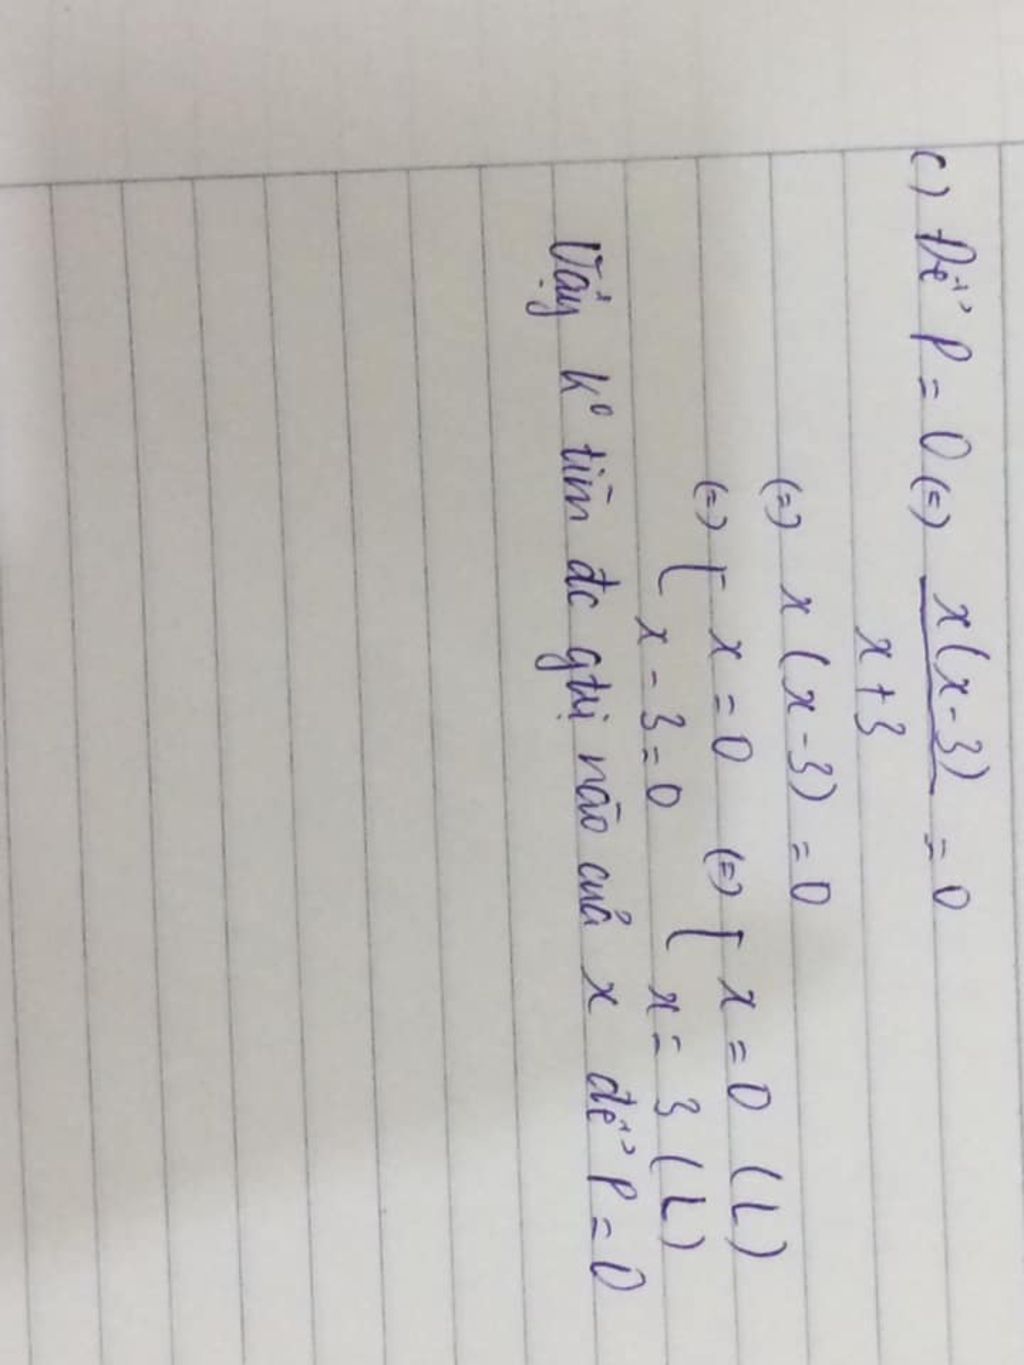 c) Để P = 0 (=) x(x-3) / x+3 = 0
(=) x (x-3) = 0
(=) [ x = 0 (=) [ x = 0 (L)
x - 3 = 0 x = 3 (L)
Vậy k° tìm đc gtrị nào của x để P = 0